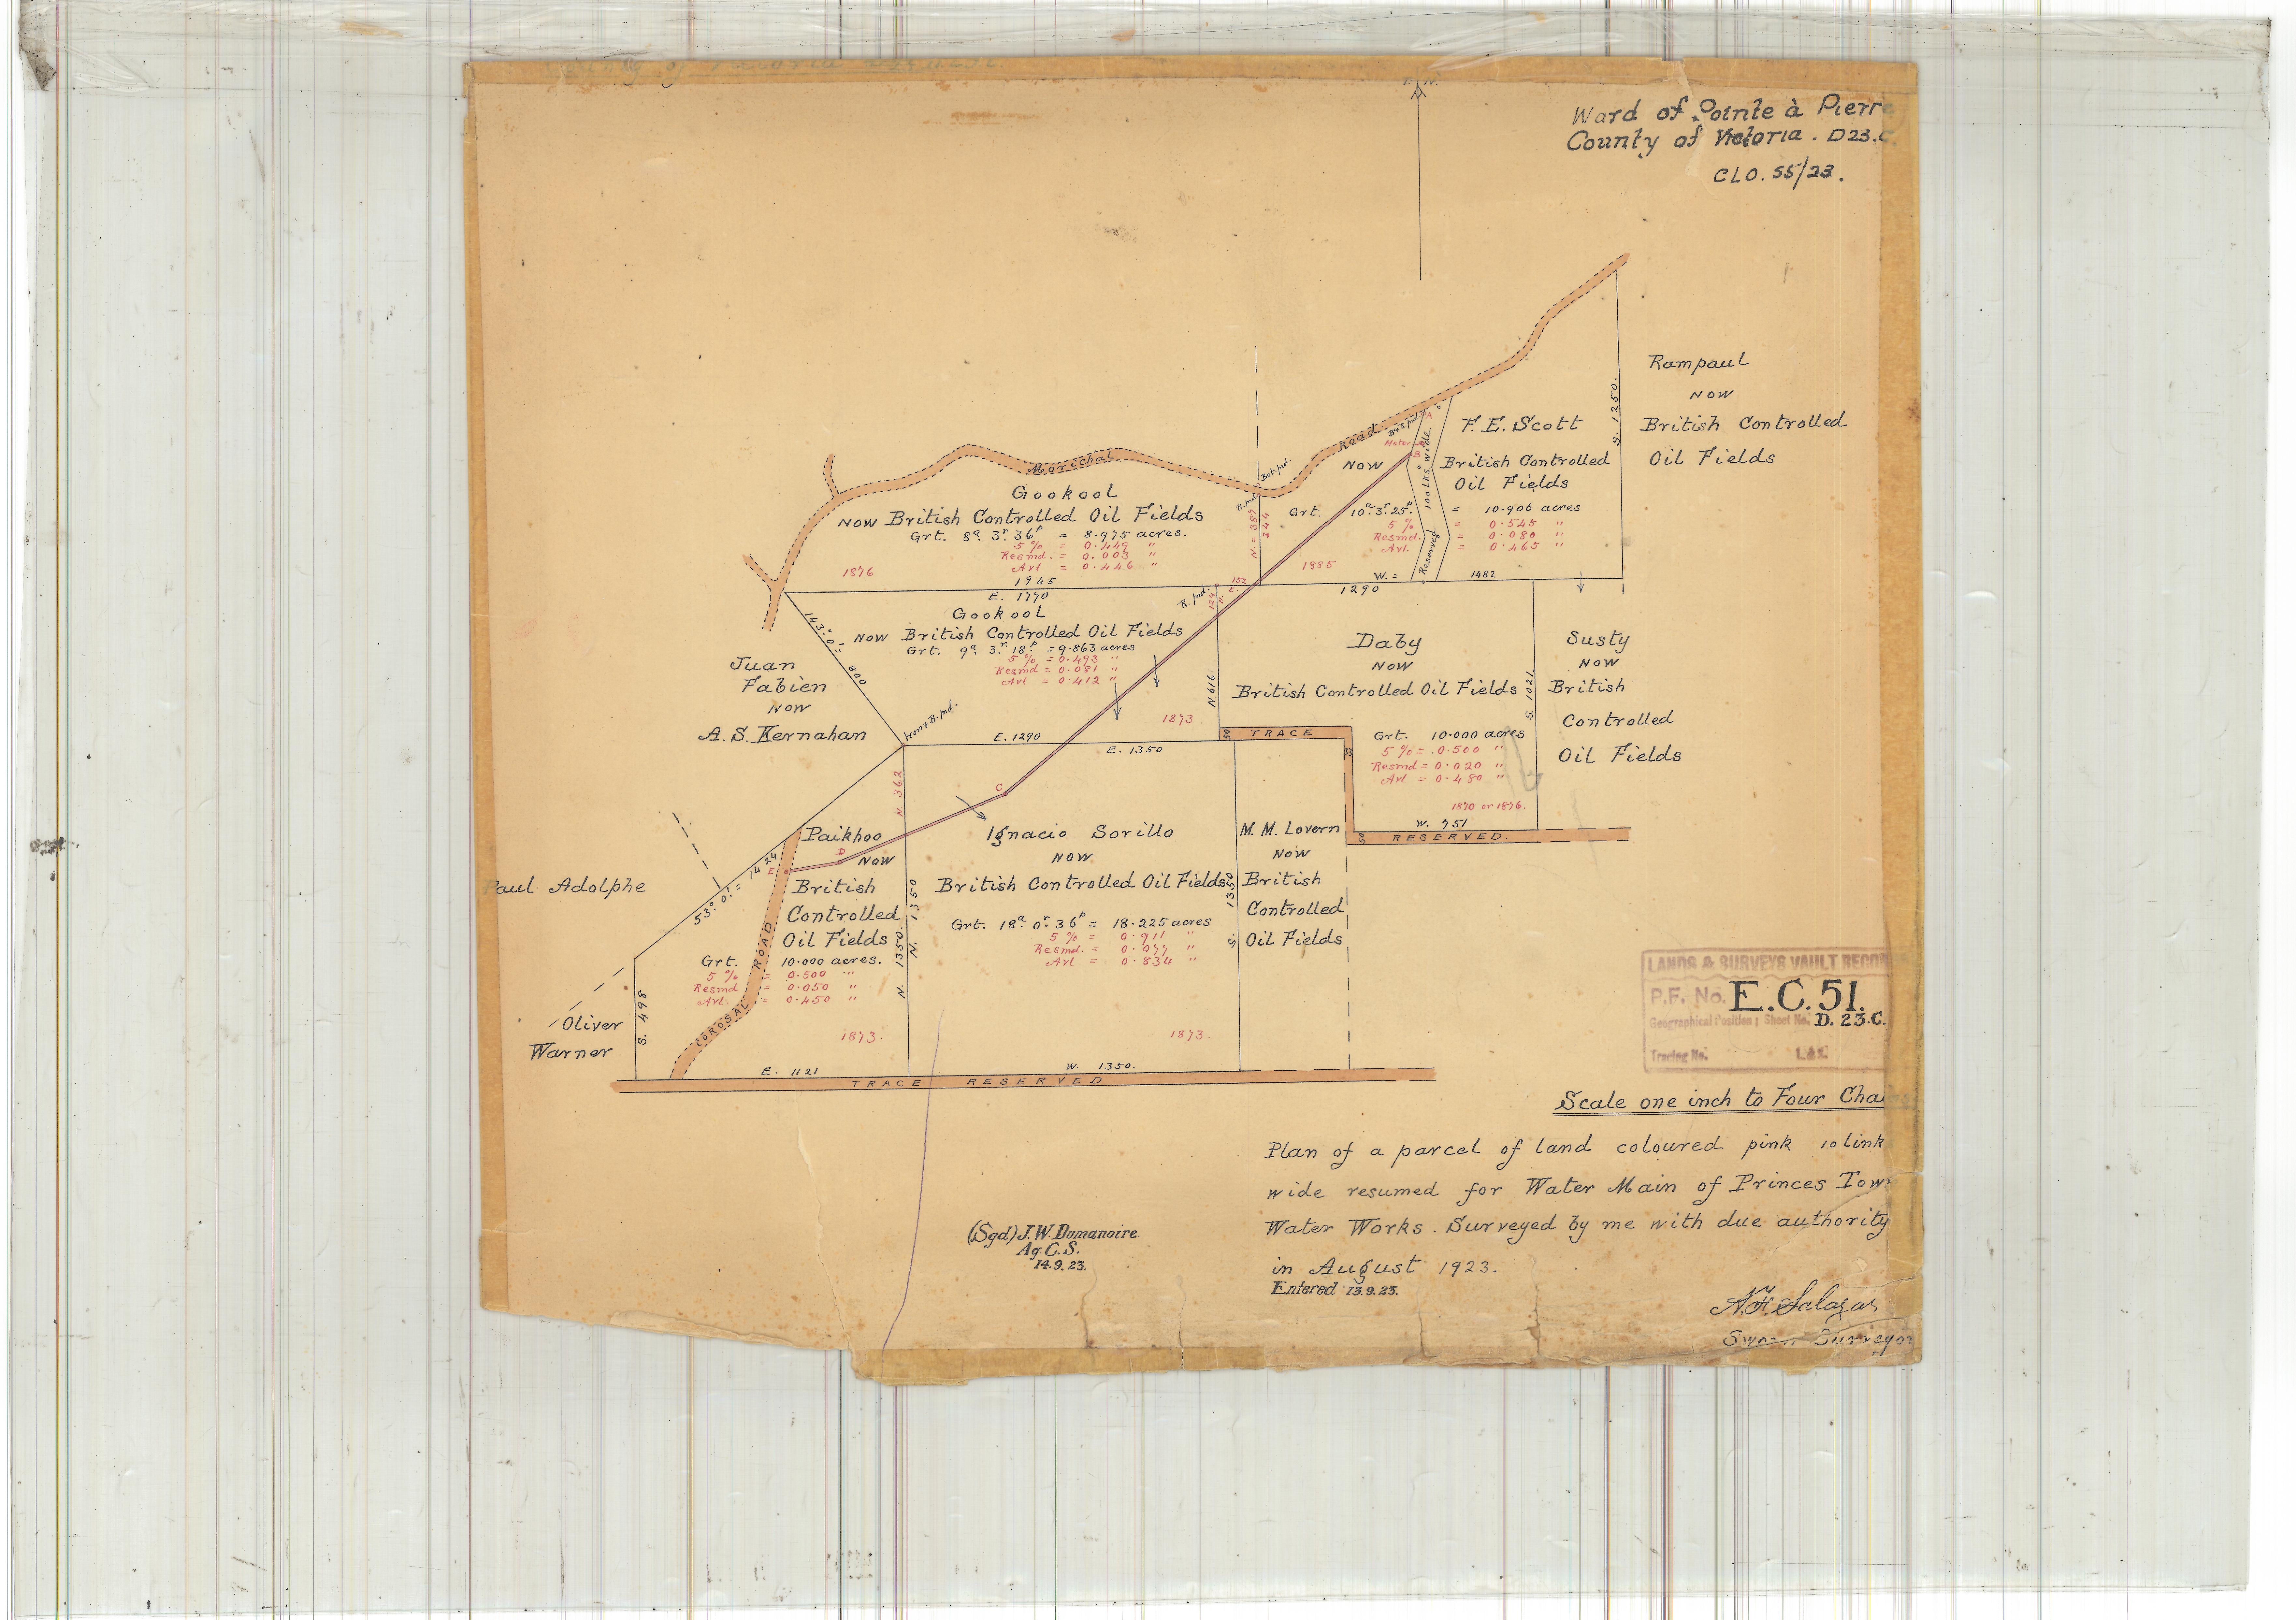 Ward of Pointe à Pierre
County of Victoria. D23.C.
CLO. 55/23.
Rampaul
NOW
British Controlled
Oil Fields
S. 1250.
F. E. Scott
NOW
British Controlled
Oil Fields
Grt. 10ᵃ. 3ʳ. 25ᵖ. = 10.906 acres
5 % = 0.545 "
Resmd. = 0.080 "
Avl. = 0.465 "
1885
W. = 1482
Reserved 100 Lks. wide
A
B
Meter
Road
Bal. Pnd.
R. Pnd.
N. = 357
244
Morichal
Gookool
NOW British Controlled Oil Fields
Grt. 8ᵃ. 3ʳ. 36ᵖ = 8.975 acres.
5 % = 0.449 "
Resmd. = 0.003 "
Avl = 0.446 "
1876
1945
E. 1770
152
124
1290
Gookool
NOW British Controlled Oil Fields
Grt. 9ᵃ. 3ʳ. 18ᵖ. = 9.863 acres
5 % = 0.493 "
Resmd = 0.081 "
Avl = 0.412 "
R. Pnd.
1873
143°. 0'. = 800
Juan
Fabien
NOW
A. S. Kernahan
Iron & B. Pnd.
N. 616
E. 1290
E. 1350
Daby
NOW
British Controlled Oil Fields
Grt. 10.000 acres
5 % = 0.500 "
Resmd = 0.020 "
Avl = 0.480 "
1870 or 1876.
S. 1021.
W. 751
50
TRACE
RESERVED.
Susty
NOW
British
Controlled
Oil Fields
N. 362
C
D
E
Paikhoo
NOW
British
Controlled
Oil Fields
Grt. 10.000 acres.
5 % = 0.500 "
Resmd = 0.050 "
Avl. = 0.450 "
1873.
53°. 0'. = 1424
Paul Adolphe
Oliver
Warner
S. 498
COROSAL ROAD
N. 1350.
N. 1350
Ignacio Sorillo
NOW
British Controlled Oil Fields
Grt. 18ᵃ. 0ʳ. 36ᵖ = 18.225 acres
5 % = 0.911 "
Resmd. = 0.077 "
Avl = 0.834 "
1873.
S. 1350
M. M. Lovern
NOW
British
Controlled
Oil Fields
E. 1121
W. 1350.
TRACE RESERVED
LANDS & SURVEYS VAULT RECOR
P.F. No. E.C. 51.
Geographical Position; Sheet No. D. 23.C.
Tracing No.
Scale one inch to Four Chains
Plan of a parcel of land coloured pink 10 link
wide resumed for Water Main of Princes Town
Water Works. Surveyed by me with due authority
in August 1923.
Entered 13.9.23.
(Sgd) J. W. Dumanoire.
Ag. C. S.
14.9.23.
A. F. Salazar
Sworn Surveyor